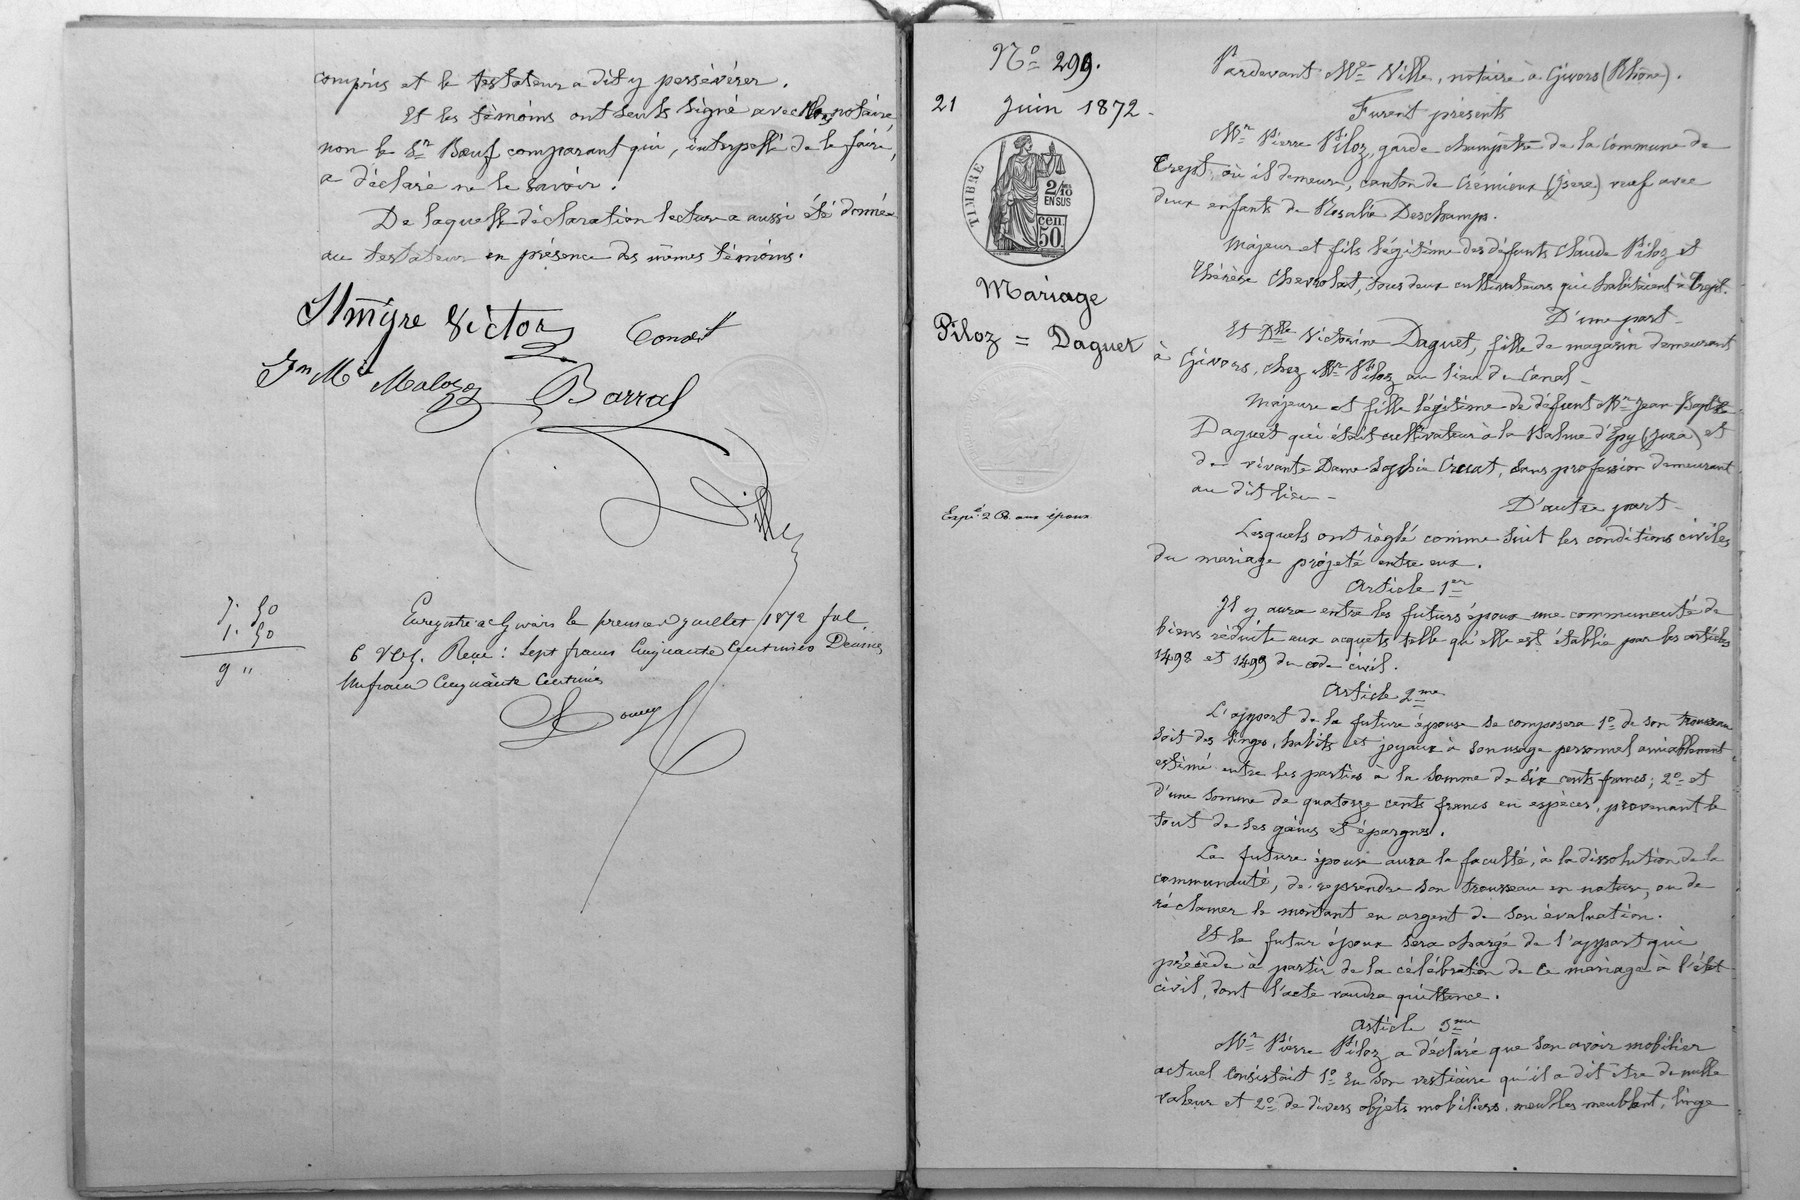 compris et le testateur a dit y persévérer.
Et les témoins ont seuls signé avec Nous notaire
non le Sr Bœuf comparant qui, interpellé de le faire,
a déclaré ne le savoir.
De laquelle déclaration lecture a aussi été donnée
au testateur en présence des mêmes témoins.
Victor
Jn Mie
Barral
Ville
7. 50
1. 50
9 "
Enregistré à Givors le premier juillet 1872 fol.
6 Reçu : Sept francs Cinquante Centimes Décimes
Un franc Cinquante Centimes
No 299.
21 Juin 1872.
TIMBRE
2/10
EN SUS
cen
50
Mariage
Piloz = Daguet
Expé 2 aux époux
Pardevant Me Ville, notaire à Givors (Rhône).
Furent présents
Mr Pierre Piloz, garde champêtre de la Commune de
Trept où il demeure, canton de Crémieux (Isère) veuf avec
deux enfants de Rosalie Deschamps.
Majeur et fils légitime des défunts Claude Piloz et
Thérèse Chevrolat, tous deux cultivateurs qui habitaient à Trept.
D'une part
Et Dlle Victorine Daguet, fille de magasin demeurant
à Givors, chez Mr Piloz au lieu du Canal
Majeure et fille légitime de défunt Mr Jean Bapte
Daguet qui était cultivateur à la Balme d'Epy (Jura) et
de vivante Dame Sophie sans profession demeurant
au dit lieu
D'autre part
Lesquels ont réglé comme suit les conditions civiles
du mariage projeté entre eux.
Article 1er
Il y aura entre les futurs époux une communauté de
biens réduite aux acquets telle qu'elle est établie par les articles
1498 et 1499 du code civil.
Article 2me
L'apport de la future épouse se composera 1o de son trousseau
soit des linges, habits et joyaux à son usage personnel amiablement
estimé entre les parties à la somme de six cents francs; 2o et
d'une somme de quatorze cents francs en espèces, provenant le
tout de ses gains et épargnes.
La future épouse aura la faculté, à la dissolution de la
communauté, de reprendre son trousseau en nature, ou de
réclamer le montant en argent de son évaluation.
Et le futur époux sera chargé de l'apport qui
précède à partir de la célébration de ce mariage à l'état
civil, dont l'acte vaudra quittance.
Article 3me
Mr Pierre Piloz a déclaré que son avoir mobilier
actuel consistait 1o En son vestiaire qu'il a dit être de nulle
valeur et 2o de divers objets mobiliers, meubles meublant, linge